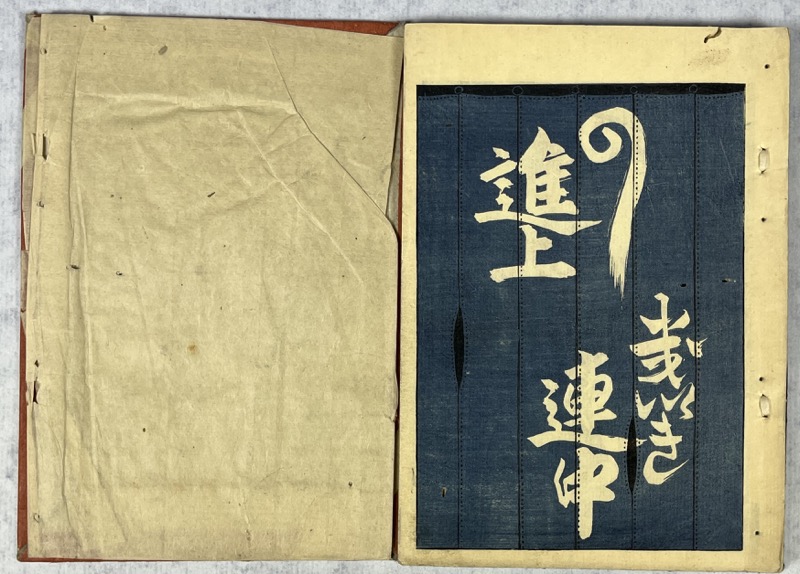 のし
進上
いき
連中